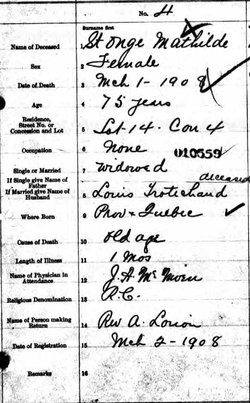 No. 4
Surname first
Name of Deceased 1 St Onge Mathilde
Sex 2 Female
Date of Death 3 Mch 1 - 1908
Age 4 75 years
Residence, Street No. or Concession and Lot 5 Lot 14. Con 4
Occupation 6 None 010559
Single or Married 7 Widowed
If Single give Name of Father
If Married give Name of Husband 8 Louis deceased
Where Born 9 Prov Quebec
Cause of Death 10 old age
Length of Illness 11 1 Mos
Name of Physician in Attendance 12 J. A.
Religious Denomination 13 R.C.
Name of Person making Return 14 Rev A.
Date of Registration 15 Mch 2 - 1908
Remarks 16